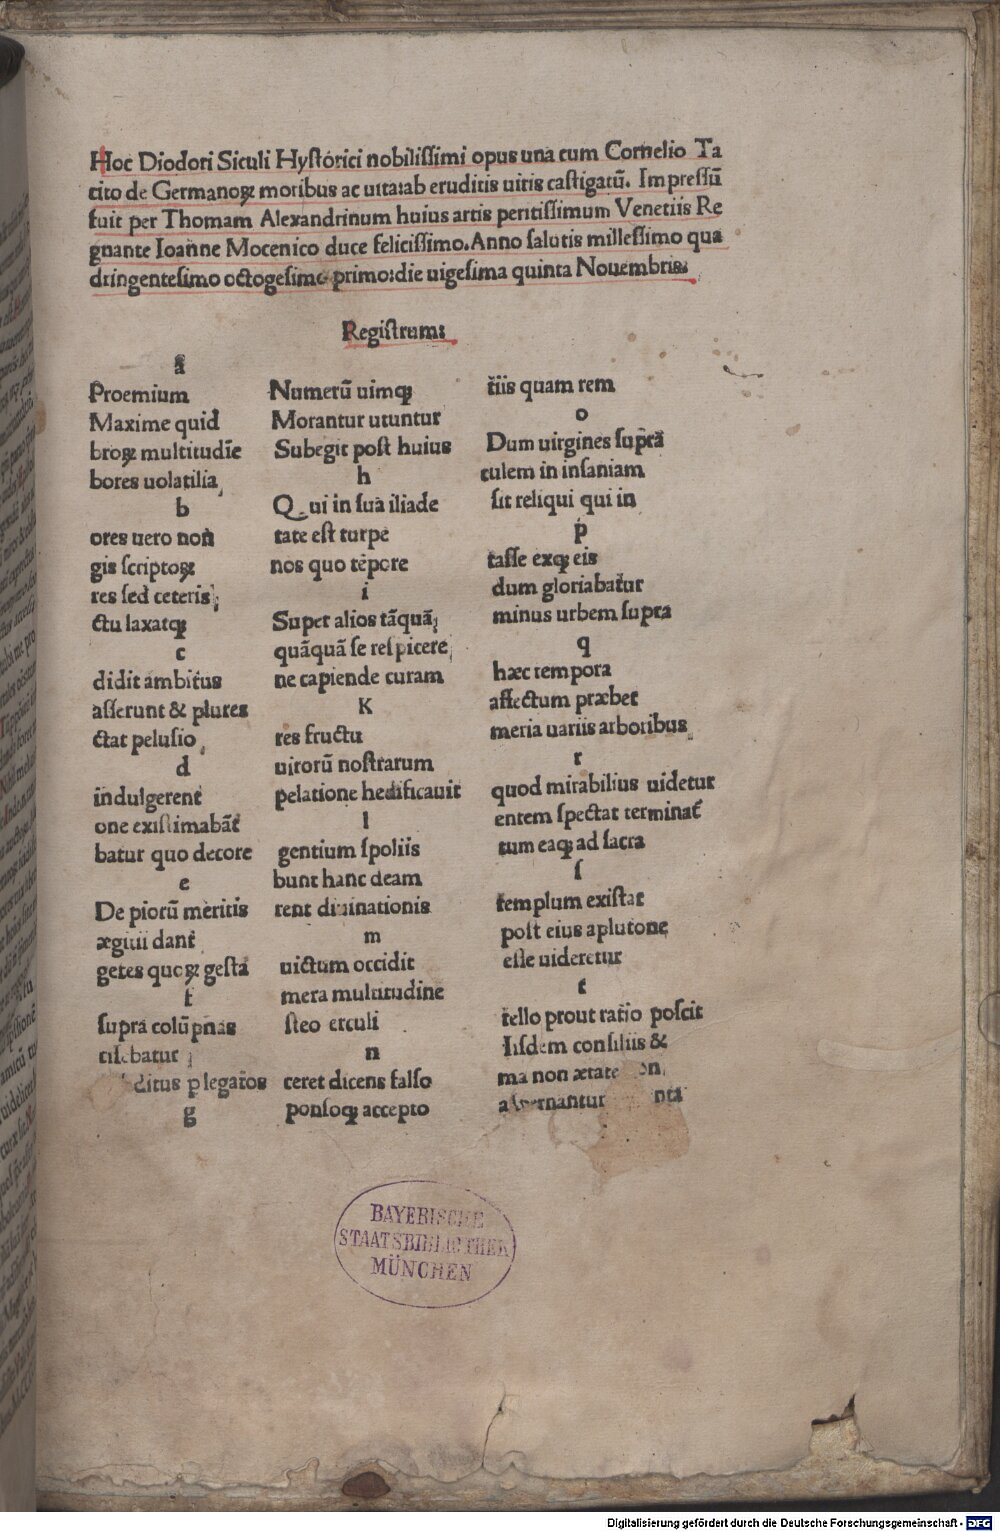 Hoc Diodori Siculi Hystorici nobilissimi opus una cum Cornelio Ta
cito de Germanoꝝ moribus ac uita:ab eruditis uiris castigatū. Impressū
fuit per Thomam Alexandrinum huius artis peritissimum Venetiis Re
gnante Ioanne Mocenico duce felicissimo. Anno salutis millessimo qua
dringentesimo octogesimo primo:die uigesima quinta Nouembris:
Registrum:
a
Proemium
Maxime quid
broꝝ multitudīe
bores uolatilia
b
ores uero non
gis scriptoꝝ
res sed ceteris
ctu laxatqꝫ
c
didit ambitus
asserunt & plures
ctat pelusio
d
indulgerent
one existimabāt
batur quo decore
e
De piorū meritis
ægitii dant
getes quoꝝ gesta
f
supra colūpnas
batur
ditus p legatos
g
Numerū uimqꝫ
Morantur utuntur
Subegit post huius
h
Qui in sua iliade
tate est turpe
nos quo tēpore
i
Super alios tāquā
quāquā se respicere
ne capiende curam
K
res fructu
uirorū nostrarum
pelatione hedificauit
l
gentium spoliis
bunt hanc deam
rent diuinationis
m
uictum occidit
mera multitudine
steo erculi
n
ceret dicens falso
ponsoqꝫ accepto
tiis quam rem
o
Dum uirgines supra
culem in insaniam
sit reliqui qui in
p
tasse exqꝫ eis
dum gloriabatur
minus urbem supra
q
hæc tempora
affectum præbet
meria uariis arboribus
r
quod mirabilius uidetur
entem spectat terminat
tum eaqꝫ ad sacra
s
templum existat
post eius aplutone
esse uideretur
t
tello prout ratio poscit
Iisdem consiliis &
ma non ætate
BAYERISCHE
STAATSBIBLIOTHEK
MÜNCHEN
Digitalisierung gefördert durch die Deutsche Forschungsgemeinschaft - DFG